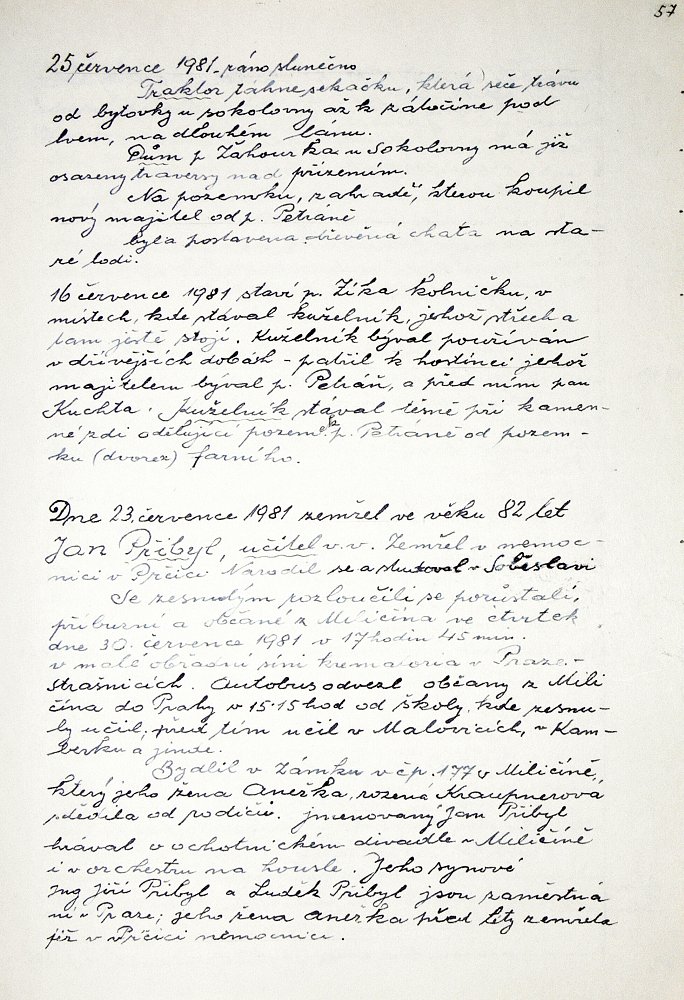 57
25 července 1981 - ráno slunečno
Traktor táhne sekačku, která seče trávu
od bytovky u sokolovny až k zátočině pod
lvem, na dlouhém lánu.
Dům p Záhourka u Sokolovny má již
osazeny traversy nad přízemím.
Na pozemku, zahradě, kterou koupil
nový majitel od p. Petráně
byla postavena dřevěná chata na sta-
ré lodi.
16 července 1981 staví p. Zíka kolničku, v
místech, kde stával kuželník, jehož střecha
tam ještě stojí. Kuželník býval používán
v dřívějších dobách - patřil k hostinci jehož
majitelem býval p. Petráň, a před ním pan
Kuchta. Kuželník stával těsně při kamen-
né zdi oddělující pozemek p. Petráně od pozem-
ku (dvorez) farního.
Dne 23. července 1981 zemřel ve věku 82 let
Jan Přibyl, učitel v.v. Zemřel v nemoc-
nici v Prčici Narodil se a studoval v Soběslavi
Se zesnulým rozloučili se pozůstalí,
příbuzní a občané z Miličína ve čtvrtek
dne 30. července 1981 v 17 hodin 45 min.
v malé obřadní síni krematoria v Praze -
Strašnicích. Autobus odvezl občany z Mili
čína do Prahy v 15.15 hod od školy, kde zesnu-
lý učil; před tím učil v Malovicích, v Kam-
berku a jinde.
Bydlil v Zámku v čp. 177 v Miličíně,
který jeho žena Anežka, rozená Kraupnerová
zdědila od rodičů. jmenovaný Jan Přibyl
hrával v ochotnickém divadle v Miličíně
i v orchestru na housle. Jeho synové
Ing Jiří Přibyl a Luděk Přibyl jsou zaměstná
ni v Praze; jeho žena Anežka před lety zemřela
již v Prčici nemocnici.